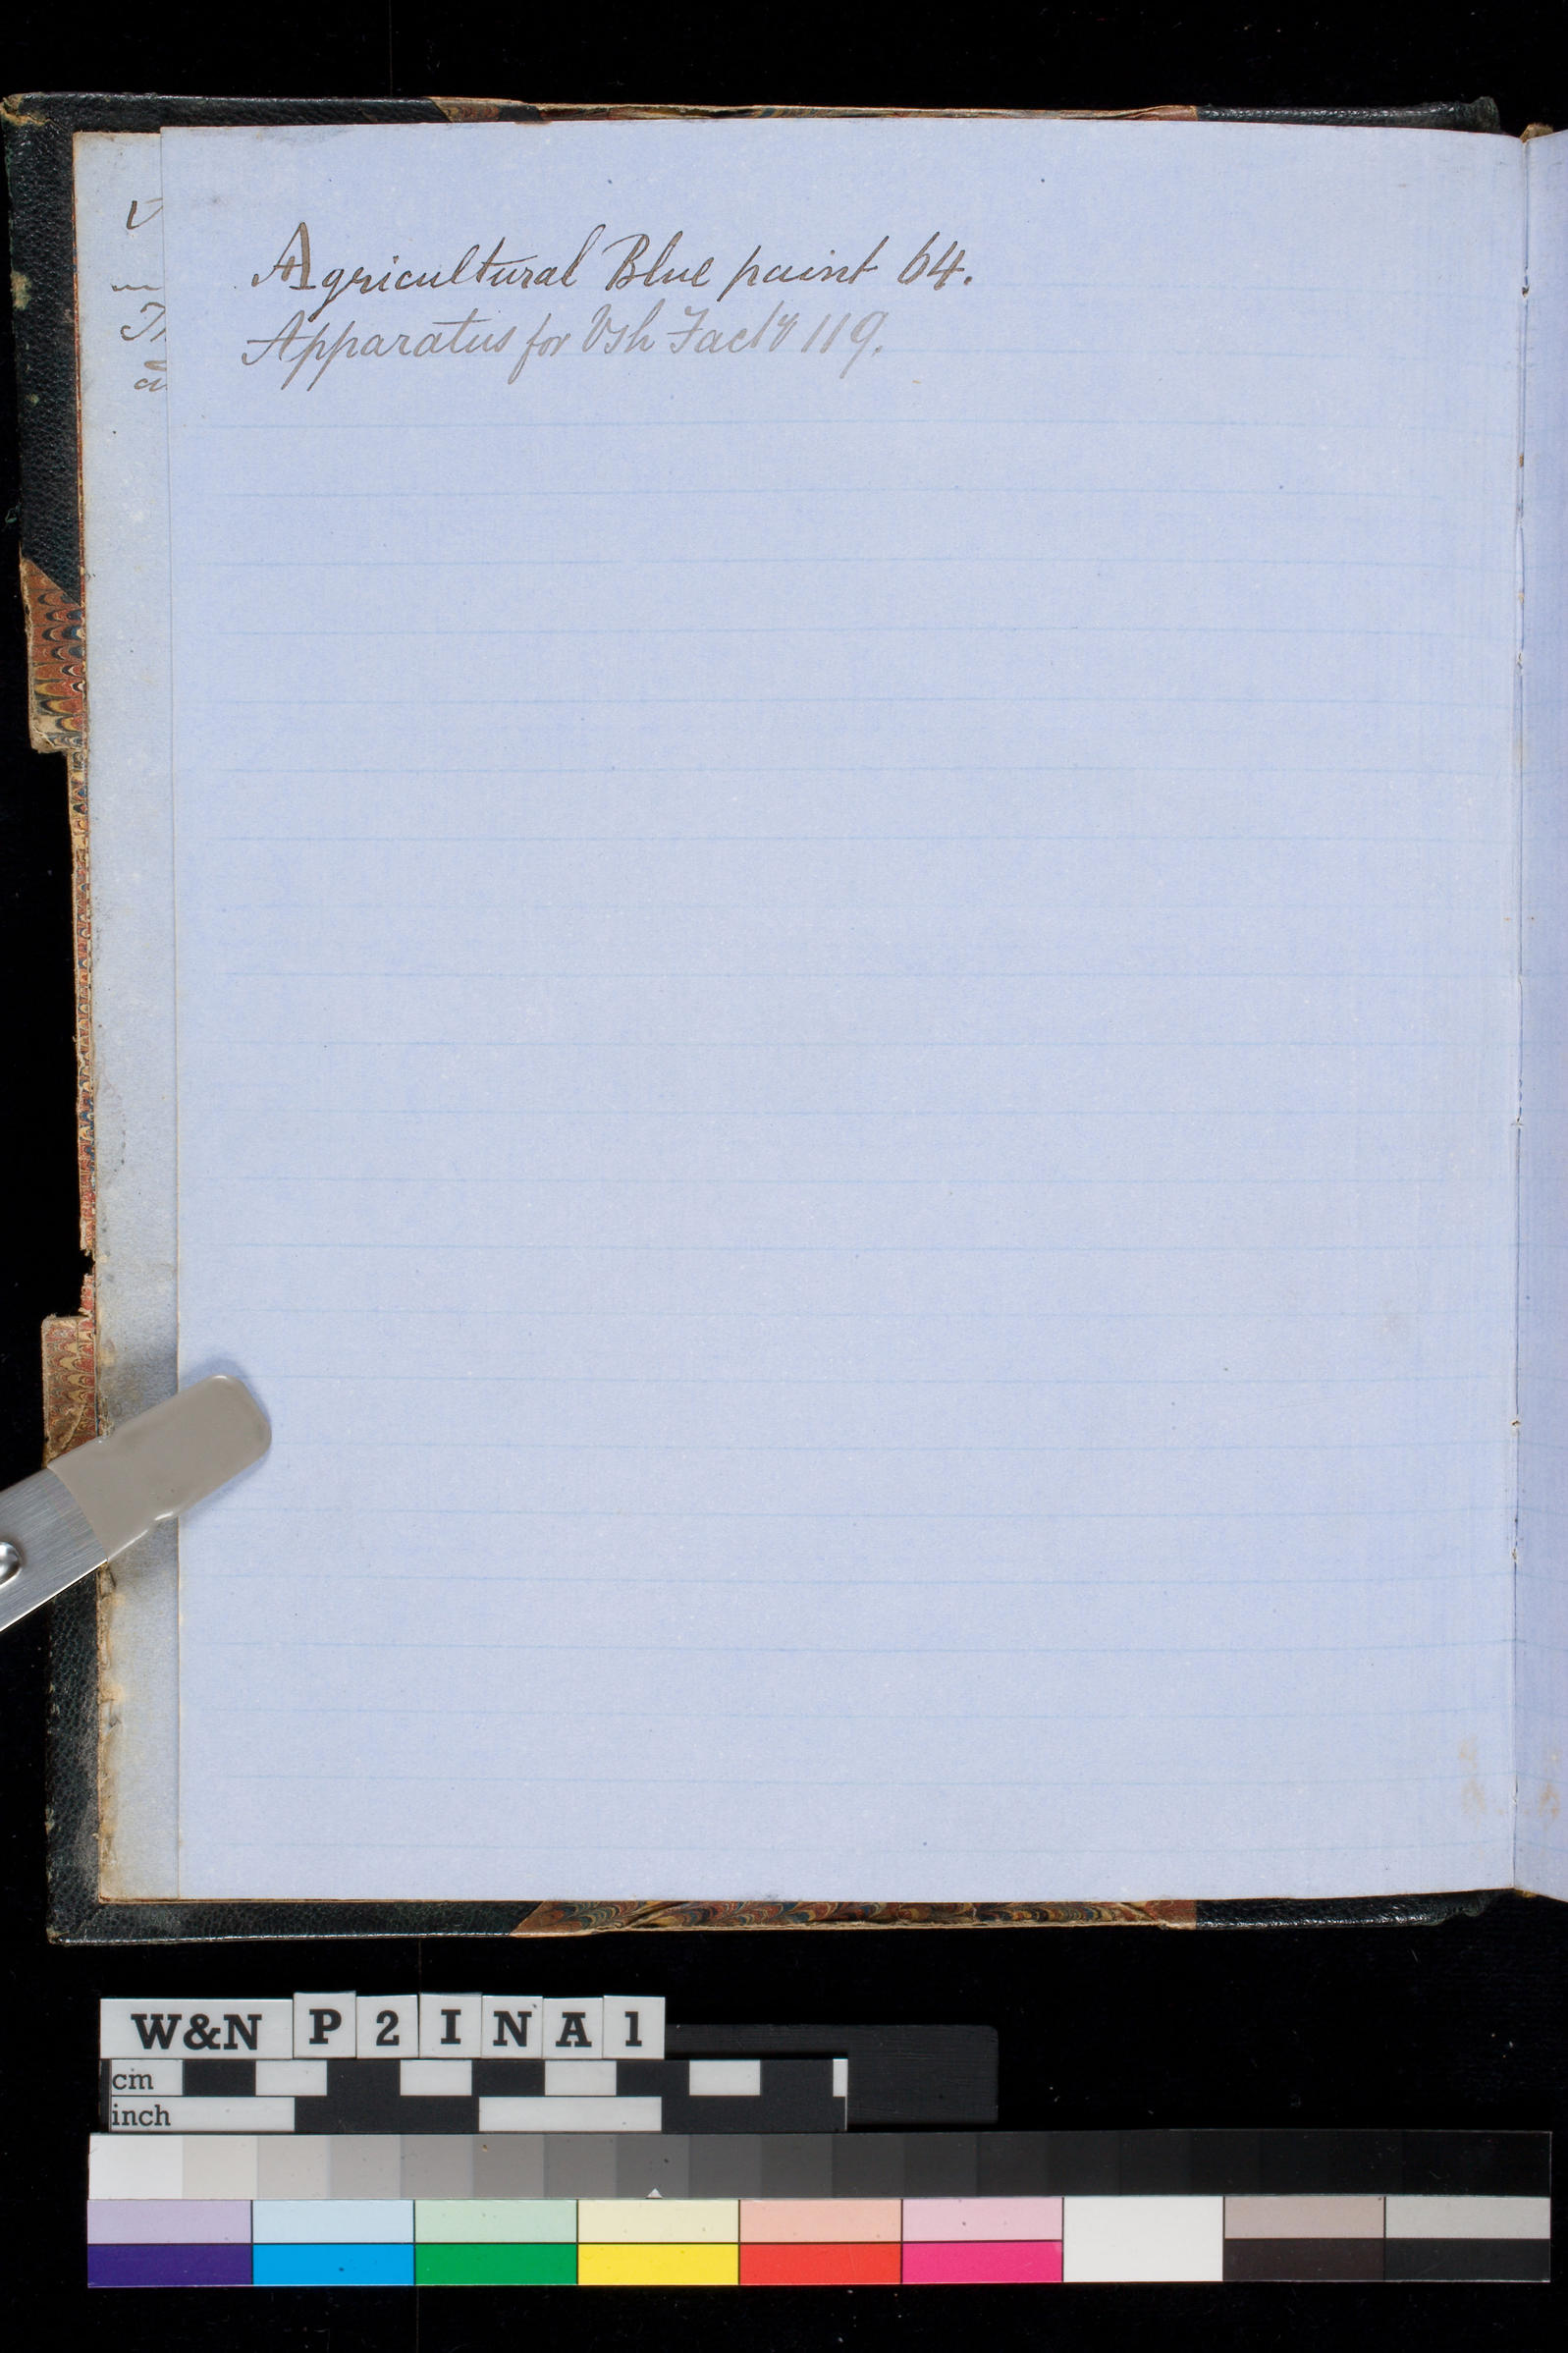 Agricultural Blue paint 64.
Apparatus for Vsh Facty 119.
W&N P2INA1
cm
inch